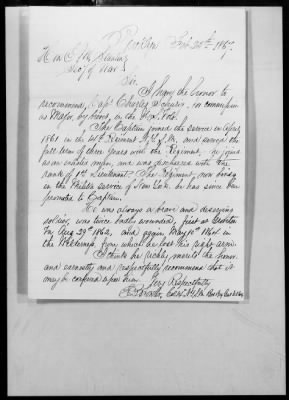 Brooklyn Feby 20th, 1867.
Hon E. M. Stanton
Secy of War
Sir
I have the honor to
recommend Capt Charles for
as Major, by brevet, in the U.S. Vols.
The Captain joined the service in April
1861 in the Regiment N.Y.S.M. and served the
full term of three years with the Regiment, he joined
as an and was discharged with the
rank of 1st Lieutenant. The Regiment, now being
in the Militia service of New York, he has since been
promoted to Captain.
He was always a brave and deserving
soldier, was twice badly wounded, first at
Va, Aug 29th 1862, and again May 10th 1864 in
the Wilderness, from which he lost his right arm.
I think he richly merits the honor
and earnestly and respectfully recommend that it
may be conferred upon him.
Very Respectfully